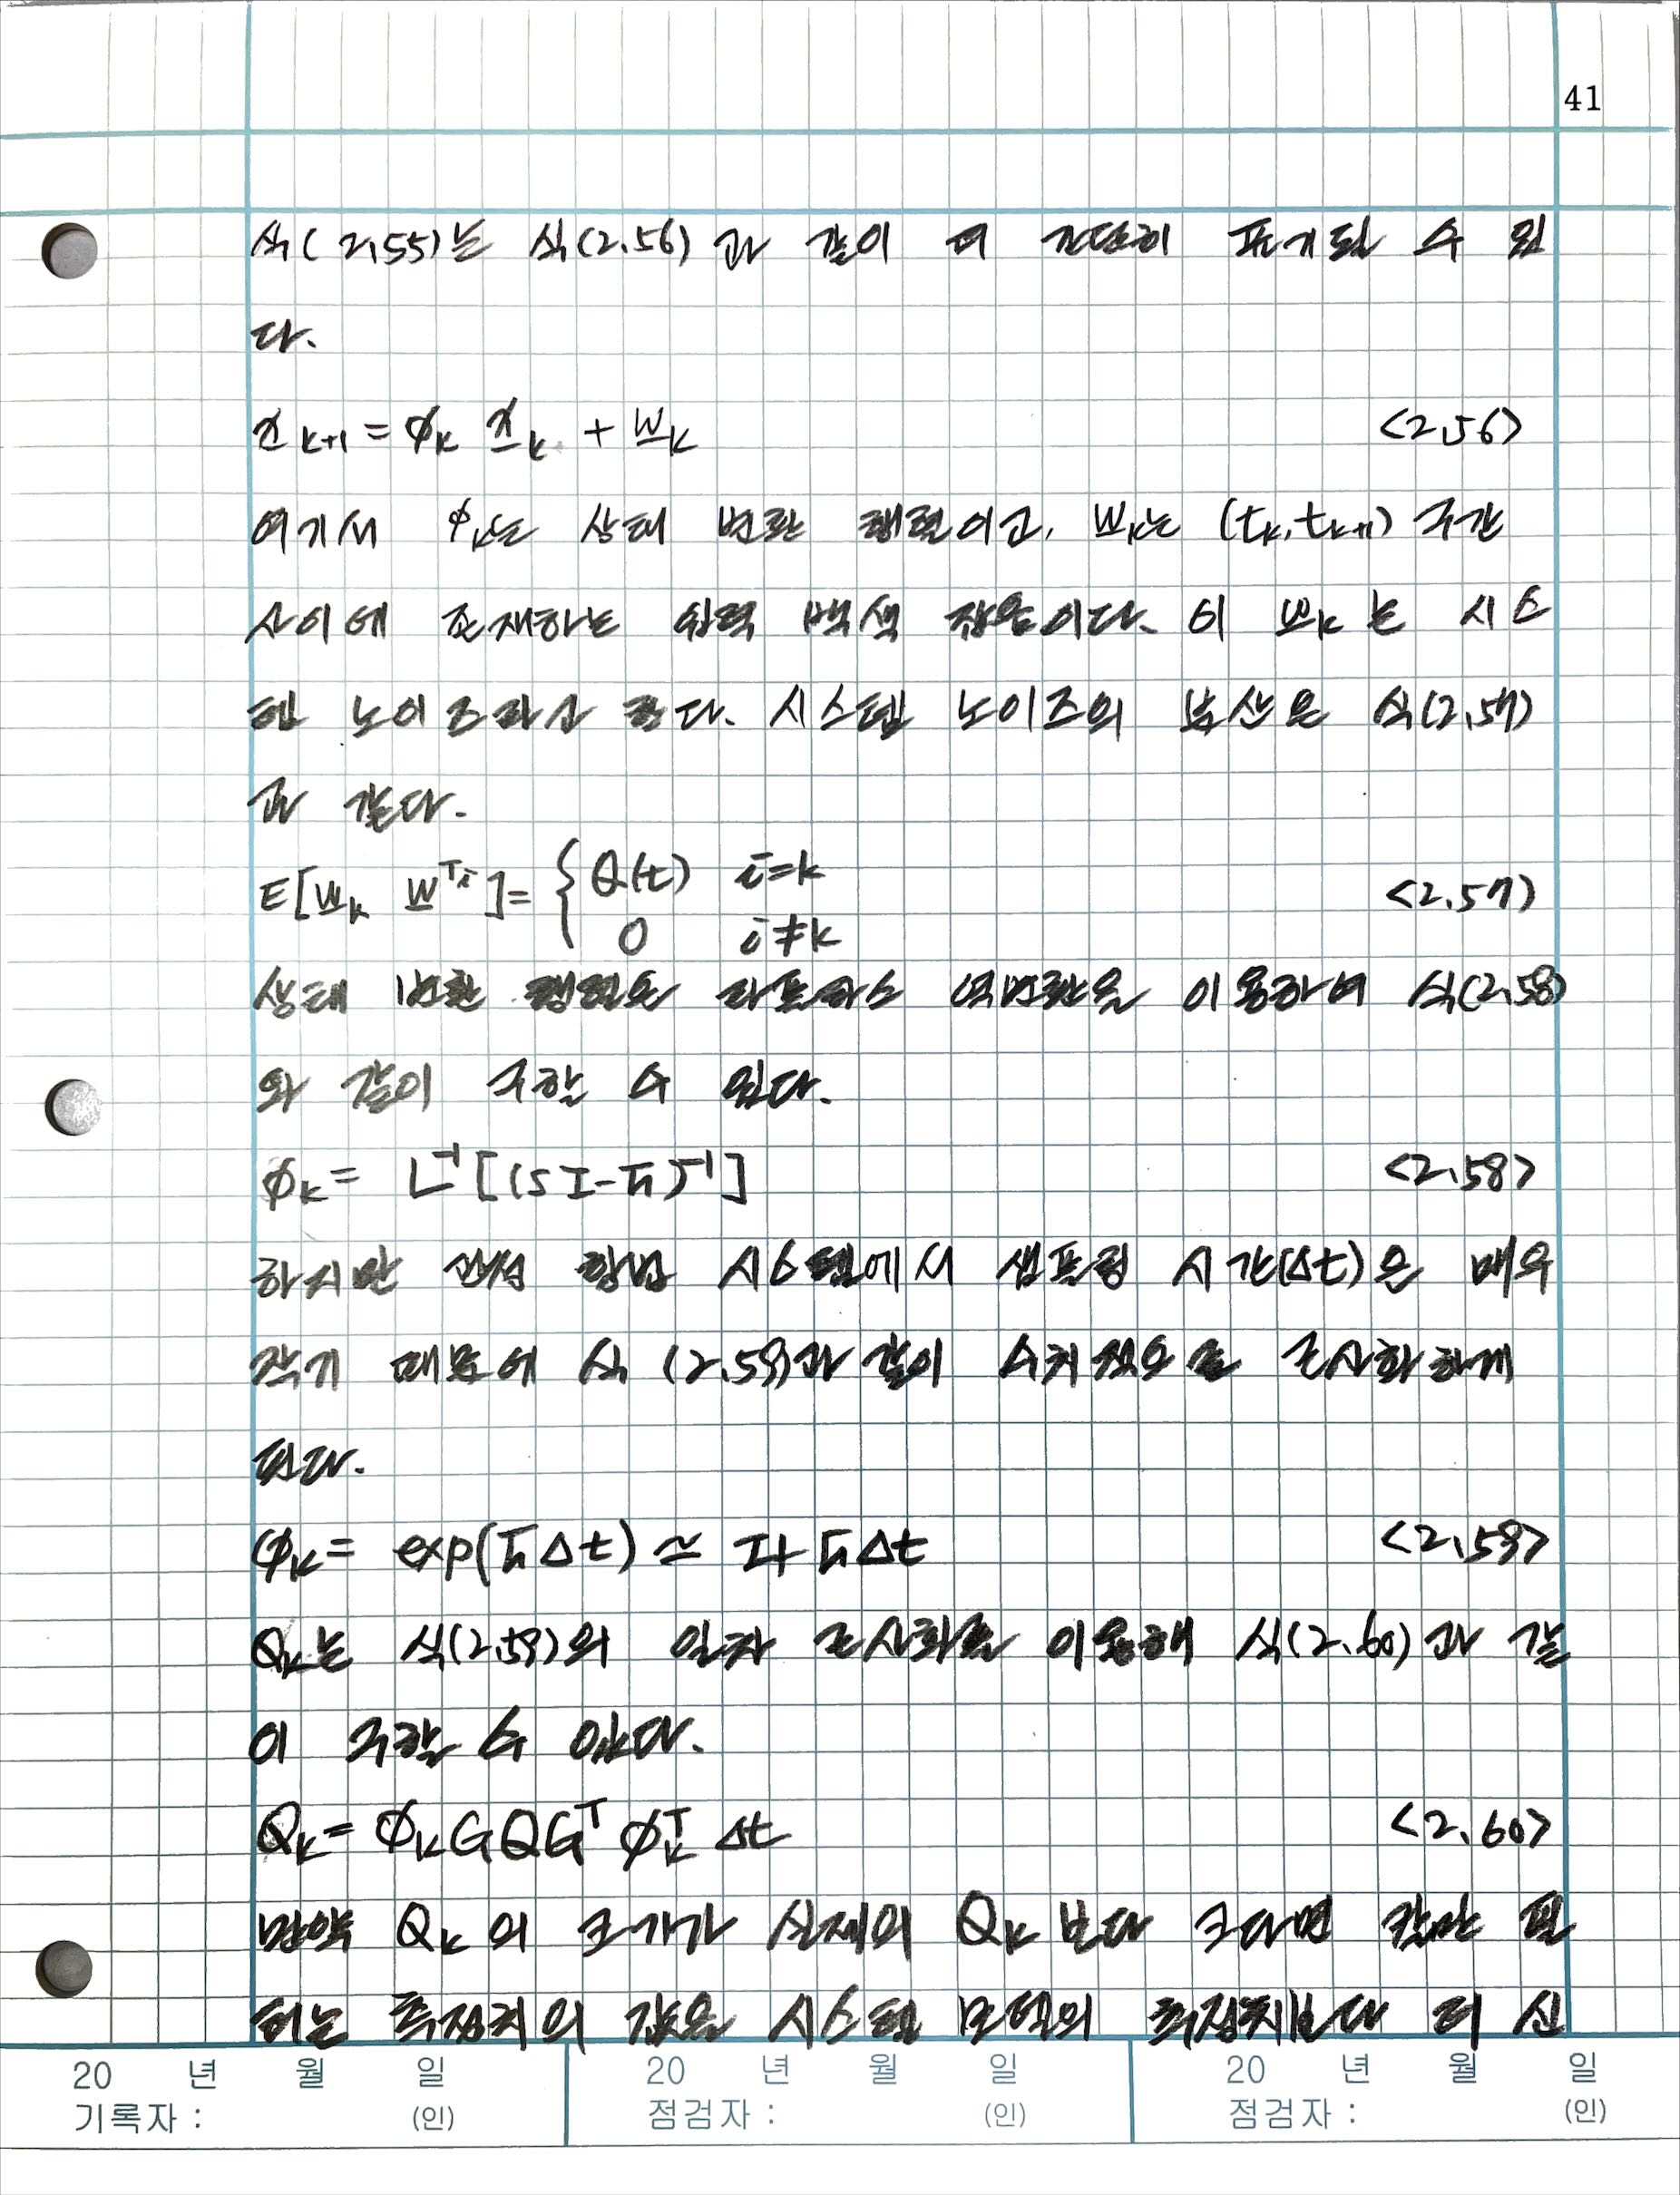 41
식(2.55)는 식(2.56)과 같이 더 간단히 표기될 수 있
다.
x k+1 = ϕk x̲k + w̲k <2.56>
여기서 ϕk는 상태 변환 행렬이고, w̲k는 (tk, tk+1) 구간
사이에 존재하는 입력 백색 잡음이다. 이 w̲k는 시스
템 노이즈라고 한다. 시스템 노이즈의 분산은 식(2.57)
과 같다.
E[w̲k w̲ᵀi] = { Q(t) i=k <2.57>
0 i≠k
상태 변환 행렬은 라플라스 역변환을 이용하여 식(2.58)
와 같이 구할 수 있다.
ϕk = L⁻¹[(sI-F)⁻¹] <2.58>
하지만 관성 항법 시스템에서 샘플링 시간(Δt)은 매우
작기 때문에 식(2.59)과 같이 수치적으로 근사화하게
된다.
ϕk = exp(FΔt) ≃ I+FΔt <2.59>
Qk는 식(2.59)의 일차 근사화를 이용해 식(2.60)과 같
이 구할 수 있다.
Qk = ϕkGQGᵀϕkᵀ Δt <2.60>
만약 Qk의 크기가 실제의 Qk보다 크다면 칼만 필
터는 측정치의 값을 시스템 모델의 추정치보다 더 신
20 년 월 일 20 년 월 일 20 년 월 일
기록자 : (인) 점검자 : (인) 점검자 : (인)